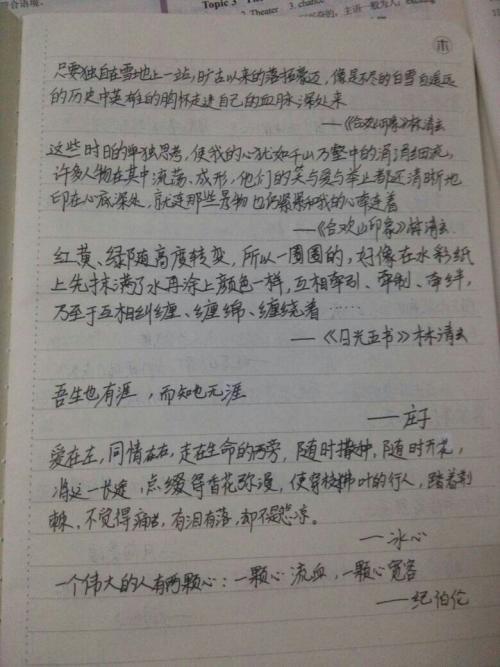 符合语境。
Topic 3
2. Theater 3. chance
木
只要独自在雪地上一站,旷古以来的落拓豪迈,像是不尽的白雪自遥远
的历史中英雄的胸怀走进自己的血脉深处来
——《合欢山印象》林清玄
这些时日的单独思考,使我的心犹如千山万壑中的涓涓细流,
许多人物在其中流荡、成形,他们的笑与爱与举止都还清晰地
印在心底深处,就连那些景物也仍紧紧和我的心牵连着
——《合欢山印象》林清玄
红黄、绿随高度转变,所以一圈圈的,好像在水彩纸
上先抹满了水再涂上颜色一样,互相牵引、牵制、牵绊,
乃至于互相纠缠、缠绵、缠绕着……
——《日光五书》林清玄
吾生也有涯,而知也无涯
——庄子
爱在左,同情在右,走在生命的两旁,随时撒种,随时开花,
将这一长途,点缀得香花弥漫,使穿枝拂叶的行人,踏着荆
棘,不觉得痛苦,有泪可落,却不是悲凉。
——冰心
一个伟大的人有两颗心:一颗心流血,一颗心宽容
——纪伯伦